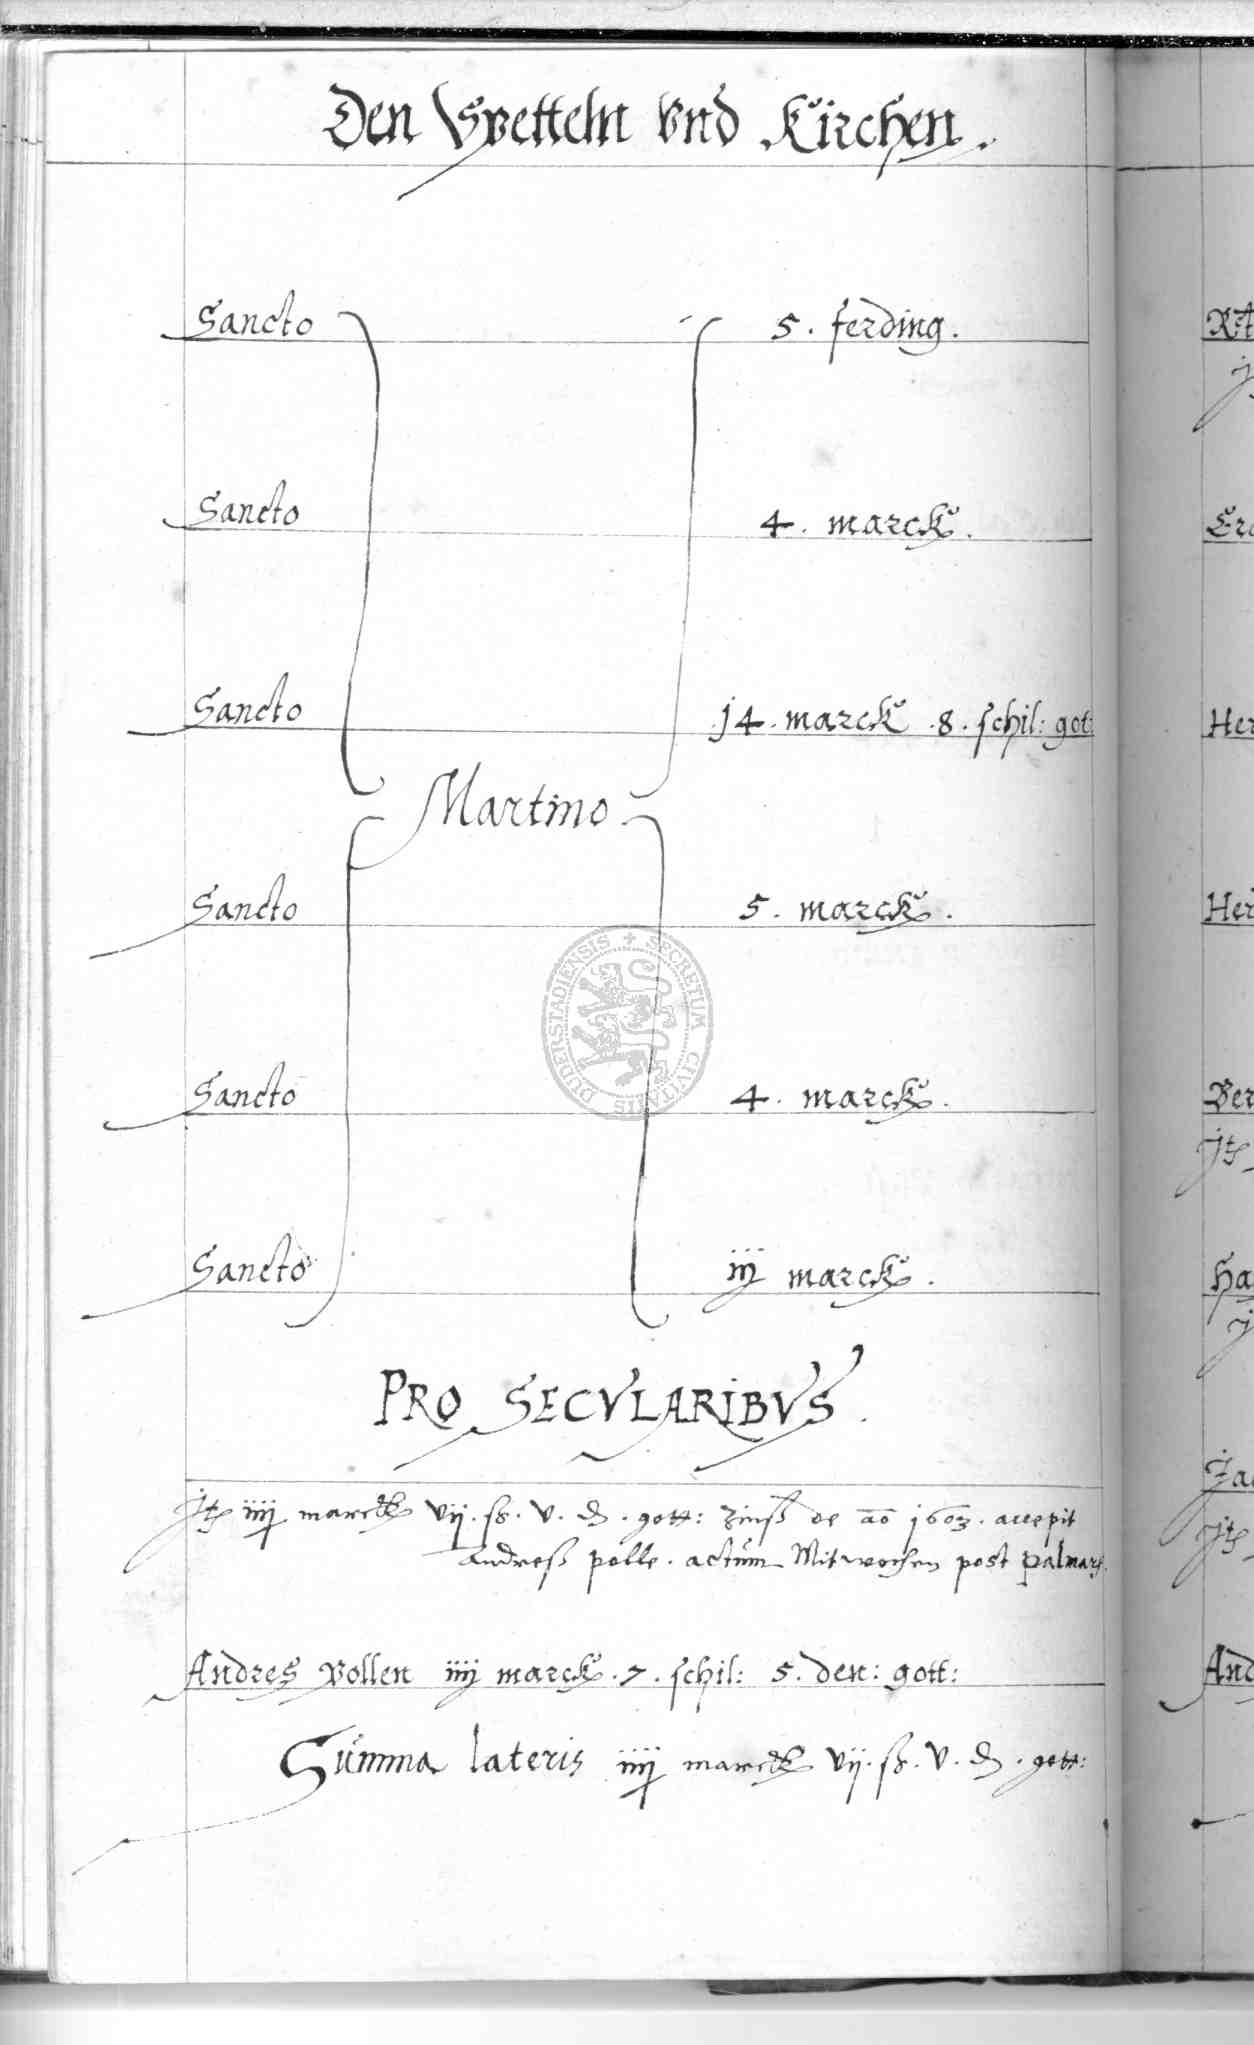 Den Spetteln vnd Kirchen.
Sancto 5. ferding.
Sancto 4. marck.
Sancto 14. marck .8. schil: got:
Martino.
Sancto 5. marck.
Sancto 4. marck.
Sancto iij marck.
PRO SECVLARIBVS.
Jt iiij marck vij. ß. v. d. gott: Zinß de ao 1603. accepit
Andreß polle. actum Mitwochen post palmarū.
Andres Pollen iiij marck .7. schil: 5. den: gott:
Summa lateris iiij marck vij. ß. v. d. gott:
SECRETUM CIVITATIS DUDERSTADIENSIS
Her
Her
Ber
Jt
Ha
Jt
And